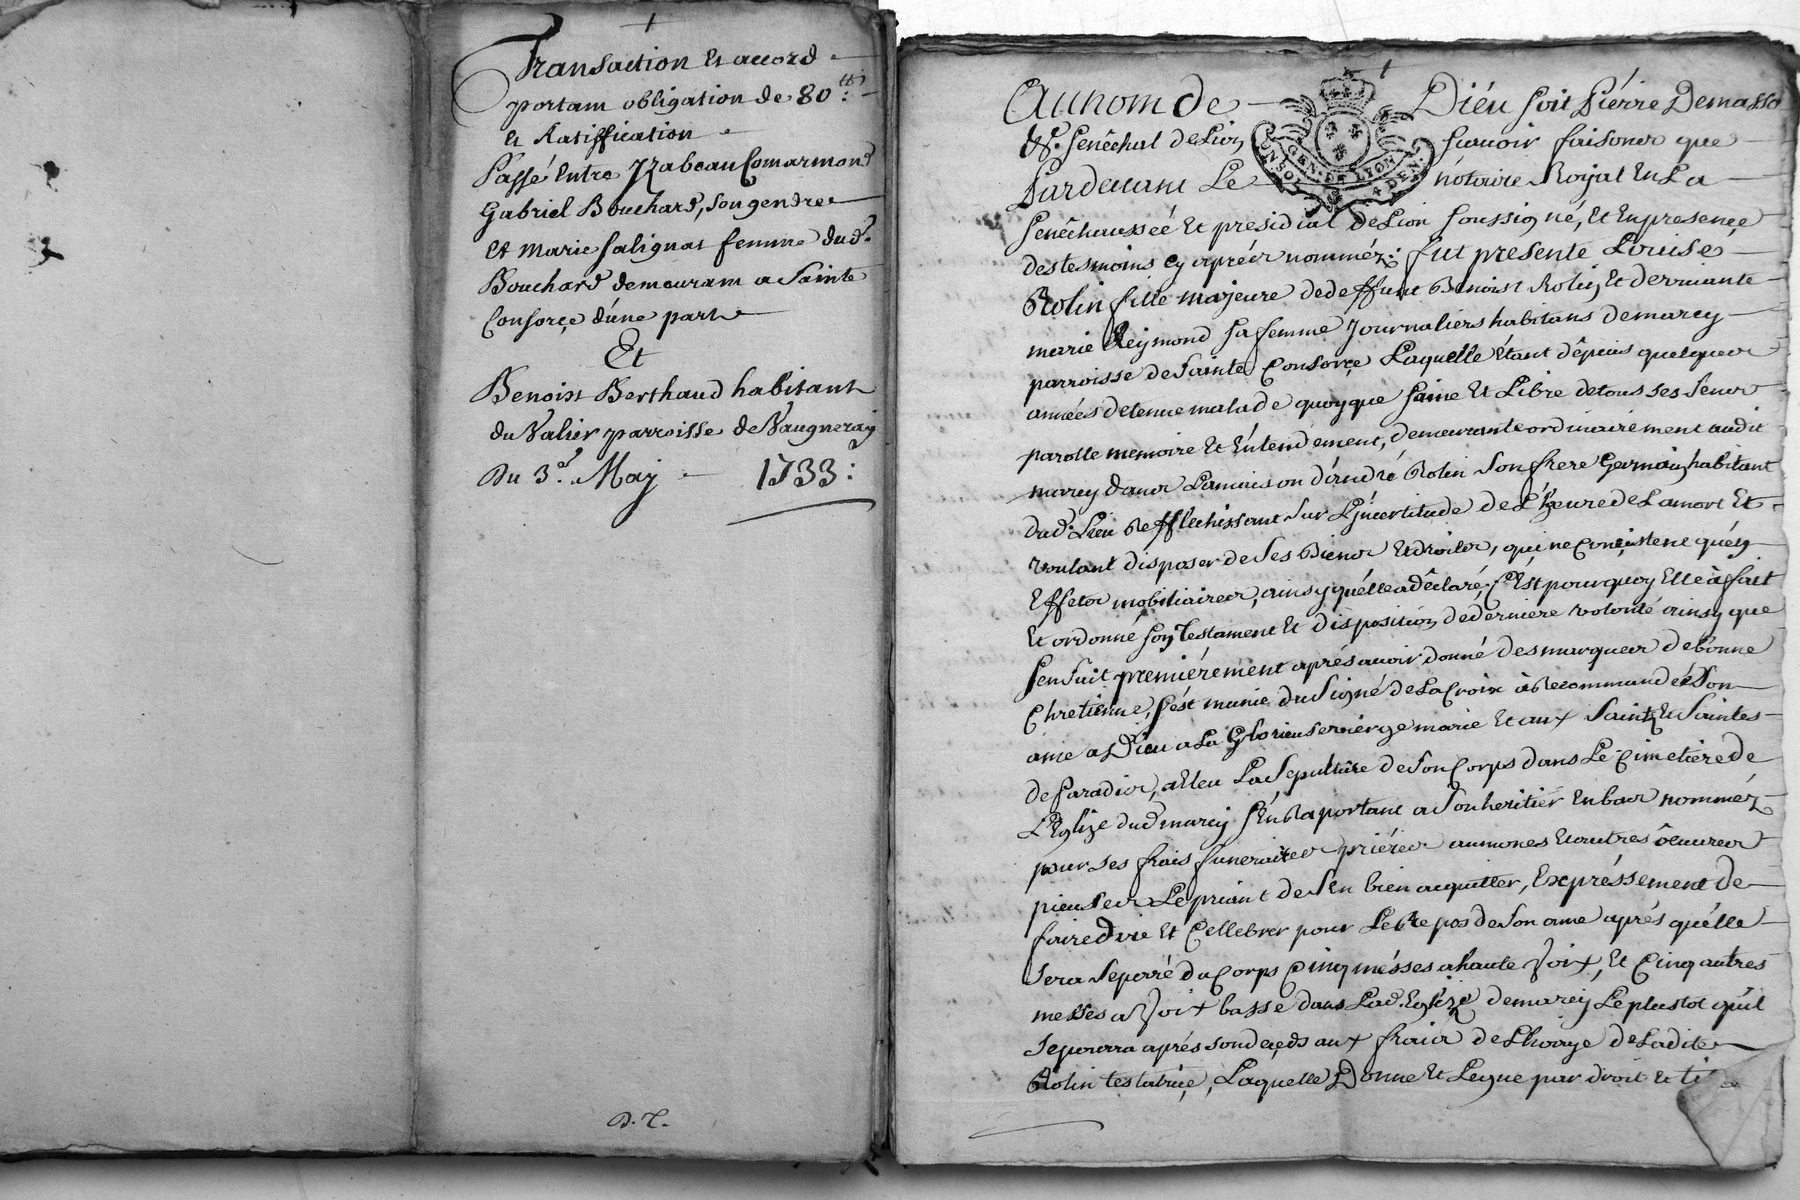 Transaction et accord
portam obligation de 80 tt:
et Ratiffication
Passé Entre Yzabeau Comarmond
Gabriel Bouchard, son gendre
et Marie Salignat femme dud.
Bouchard demeuram a Sainte
Consorçe d'úne part
Et
Benoist Berthaud habitant
du Valier parroisse de Vaugneray
Du 3e. May 1733:
D. C.
Au nom de Diéu soit Piérre Demasso
Sr. Senêchal de Lion sçauoir faisons que
Pardeuant Le nótaire Royal En La
Senêchaussée Et présidial de Lion soussigné, Et En presençe
des tesmoins cy aprés nomméz: fut presente Loüise
Rolin fille majeure de deffunt Benoist Rolin Et de viuante
marie Reymond sa femme Journaliers habitans de marcy
parroisse de Sainte Consorçe Laquelle Etant dêpuis quelques
années detenue malade quoyque saine Et Libre de tous ses sens
parolle memoire Et Entendement, demeurante ordinairement audit
marcy dans La maison d'andré Rolin son frere Germain habitant
dud. Lieu Refflechissant sur L'jncertitude de L'heure de La mort Et
voulant disposer de ses Biens Et droits, qui ne Consistent qu'én
Effets mobiliaires, ainsy qu'élle a dêclaré, C'Est pourquoy Elle à fait
Et ordonné son Testament Et disposition de derniere volonté ainsy que
s'en suit premiérement aprés auoir donné des marques de bonne
Chretienne, s'ést munie du signe de La Croix à Recommandé son
ame a Dieu a La Glorieuse viérge marie Et aux Saints Et Saintes
de Paradis, a Eleu La Sepulture de son Corps dans Le Cimetiére de
L'Eglize dud marcy s'En Raportant a son heritiér En bas nomméz
pour ses frais funeraires priéres aumones Et autres oeuures
pieuses Le priant de s'En bien acquitter, Expréssement de
faire dire Et Cellebrer pour Le Repos de son ame aprés qu'élle
sera Séparé du Corps Cinq mésses a haute Voix, Et Cinq autres
messes a Voix basse dans Lad. Eglize de marcy Le plustot qu'il
se pourra aprés son deçeds aux frais de L'hoirye de Ladite
Rolin testatriçe, Laquelle Donne Et Legue par droit Et